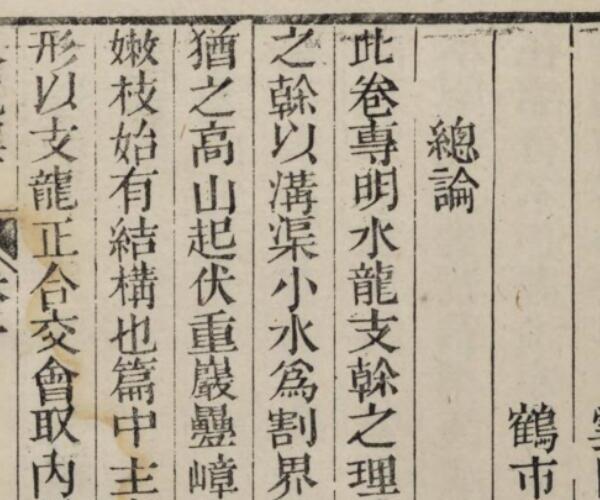 鶴市
總論
此卷専明水龍支榦之理
之榦以溝渠小水爲割界
猶之高山起伏重巖疊嶂
嫩枝始有結構也篇中主
形以支龍正合交會取内